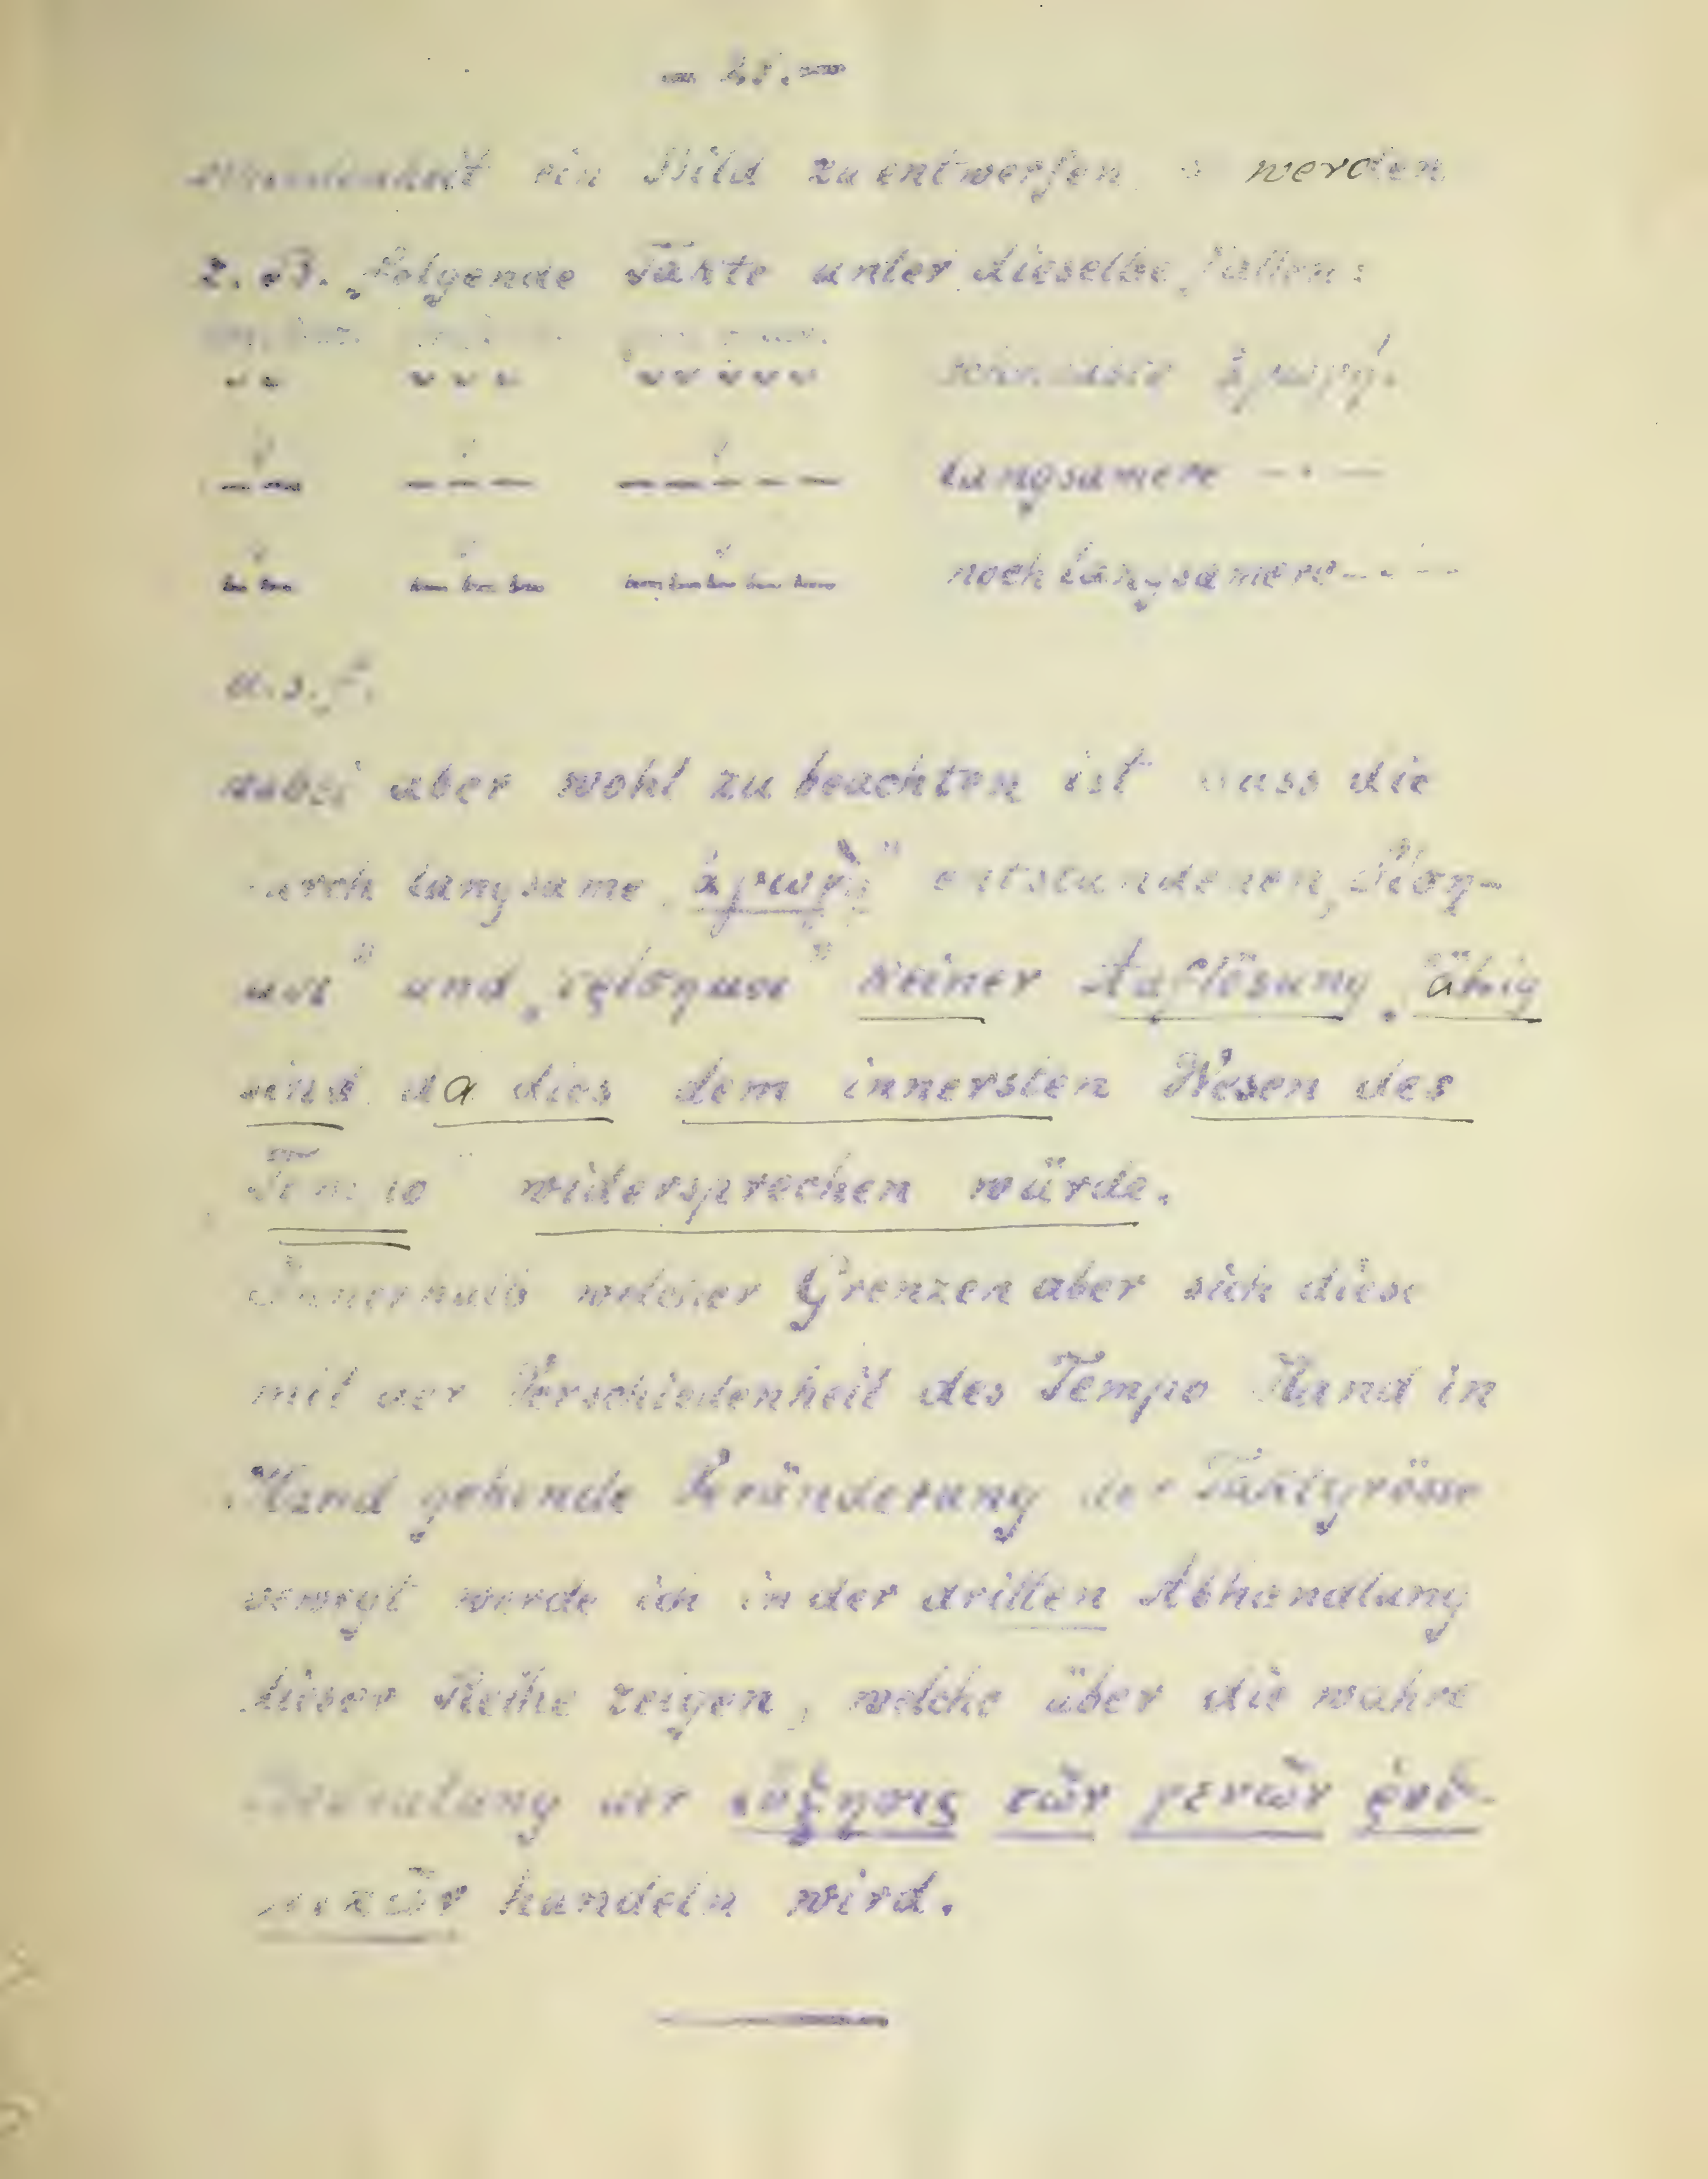 ein Bild zu entwerfen werden
z. B. folgende Takte unter dieselbe fallen:
schnellste ἀγωγή.
langsamere — " —
noch langsamere — " —
u. s. f.
dabei aber wohl zu beachten ist dass die
durch langsame „ἀγωγὴ" entstandenen „δίση-
μοι" und „τρίσημοι" keiner Auflösung fähig
sind da dies dem innersten Wesen des
Tempo widersprechen würde.
Innerhalb welcher Grenzen aber sich diese
mit der Verschiedenheit des Tempo Hand in
Hand gehende Veränderung der Taktgrösse
bewegt werde ich in der dritten Abhandlung
dieser Reihe zeigen, welche über die wahre
Bedeutung der αὔξησις τῶν γενῶν ῥυθ-
μικῶν handeln wird.